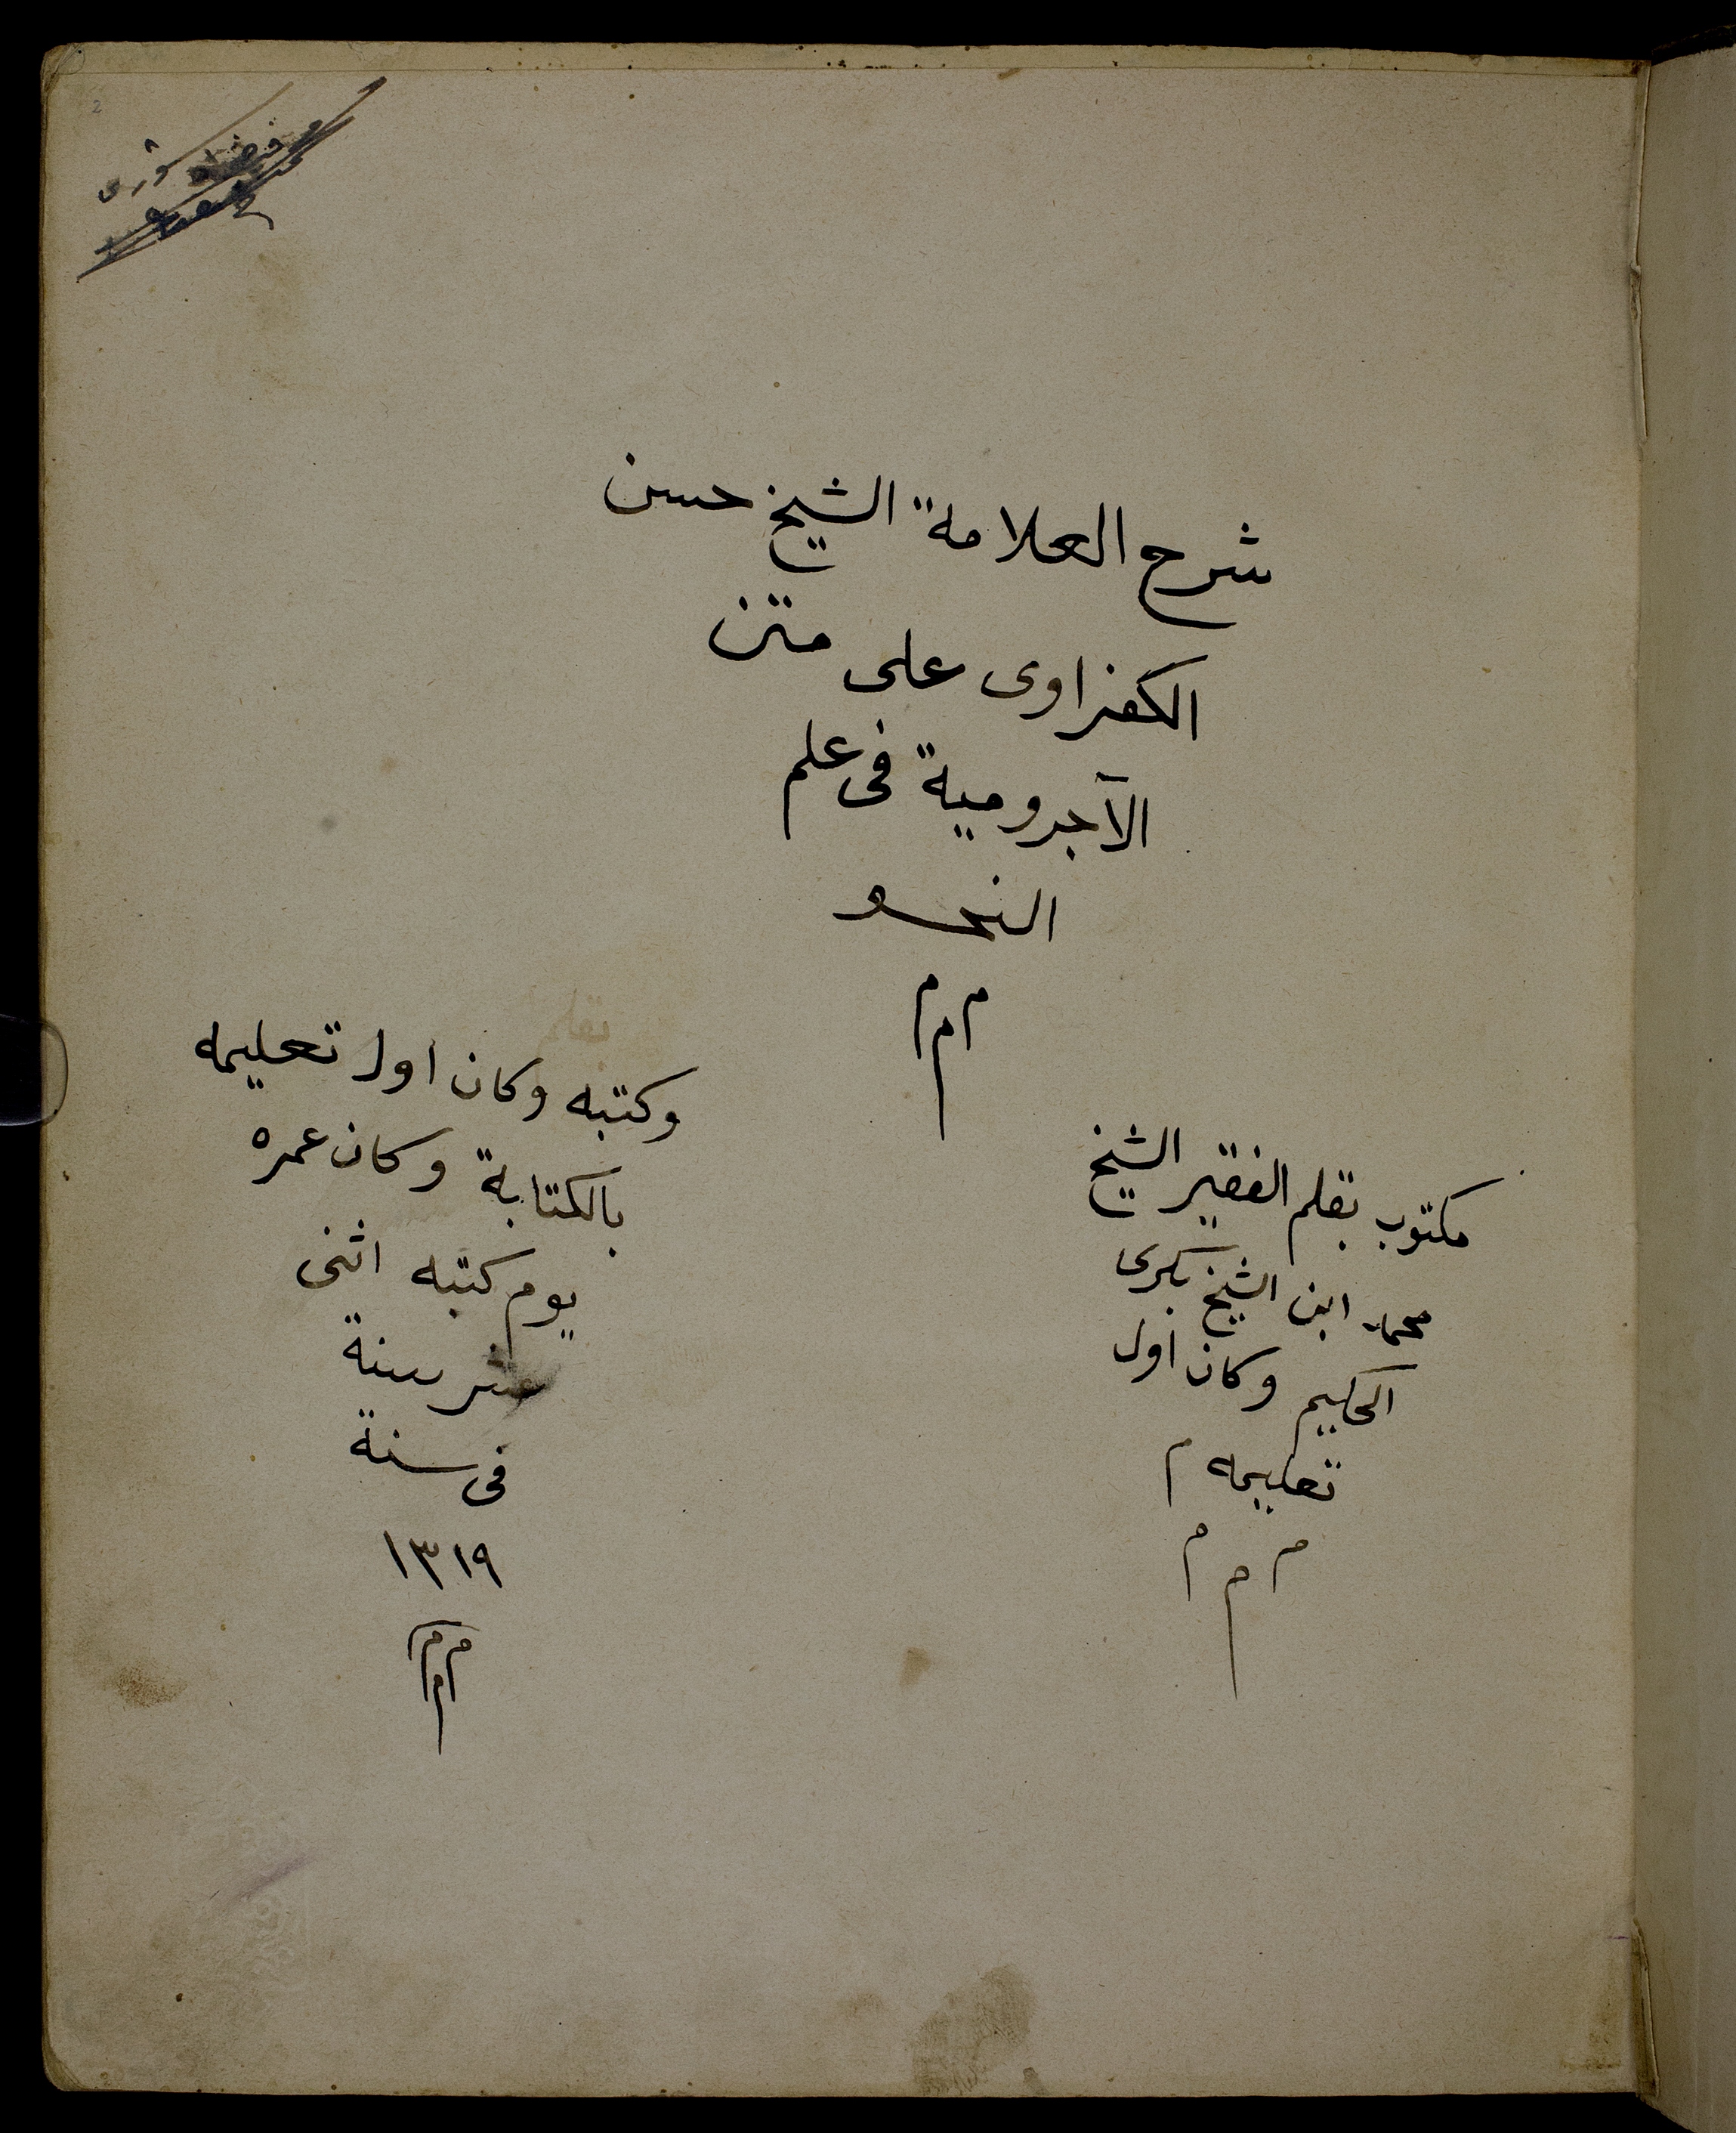 شرح العلامة الشيخ حسن
الكفراوى على متن
الآجرومية فى علم
النحو
م م م
مكتوب بقلم الفقير الشيخ
محمد ابن الشيخ بكرى
الحكيم وكان اول
تعليمه م
م م م
وكتبه وكان اول تعليمه
بالكتابة وكان عمره
يوم كتبه اثنى
عشر سنة
فى سنة
١٣١٩
م م م